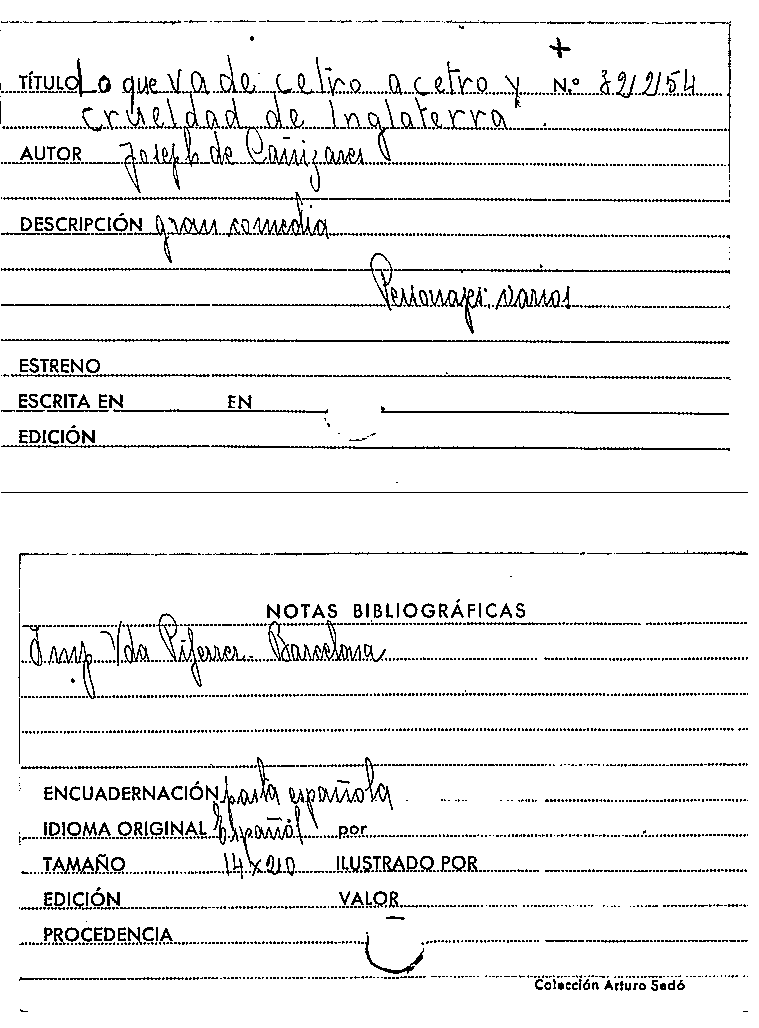 +
TÍTULO Lo que va de cetro a cetro y N.º 32/2/54
crueldad de Inglaterra
AUTOR Joseph de Cañizares
DESCRIPCIÓN gran comedia
Personajes: varios
ESTRENO
ESCRITA EN EN
EDICIÓN
NOTAS BIBLIOGRÁFICAS
Imp Vda Piferrer. Barcelona
ENCUADERNACIÓN pasta española
IDIOMA ORIGINAL Español por
TAMAÑO 14x20 ILUSTRADO POR
EDICIÓN VALOR
PROCEDENCIA
Colección Arturo Sedó